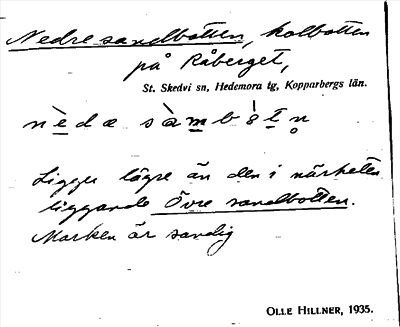 Nedre sandbotten, kolbotten
på Råberget,
St. Skedvi sn, Hedemora tg, Kopparbergs län.
nèdæ sàmbòtn̥
Ligger lägre än den i närheten
liggande Övre sandbotten.
Marken är sandig
OLLE HILLNER, 1935.